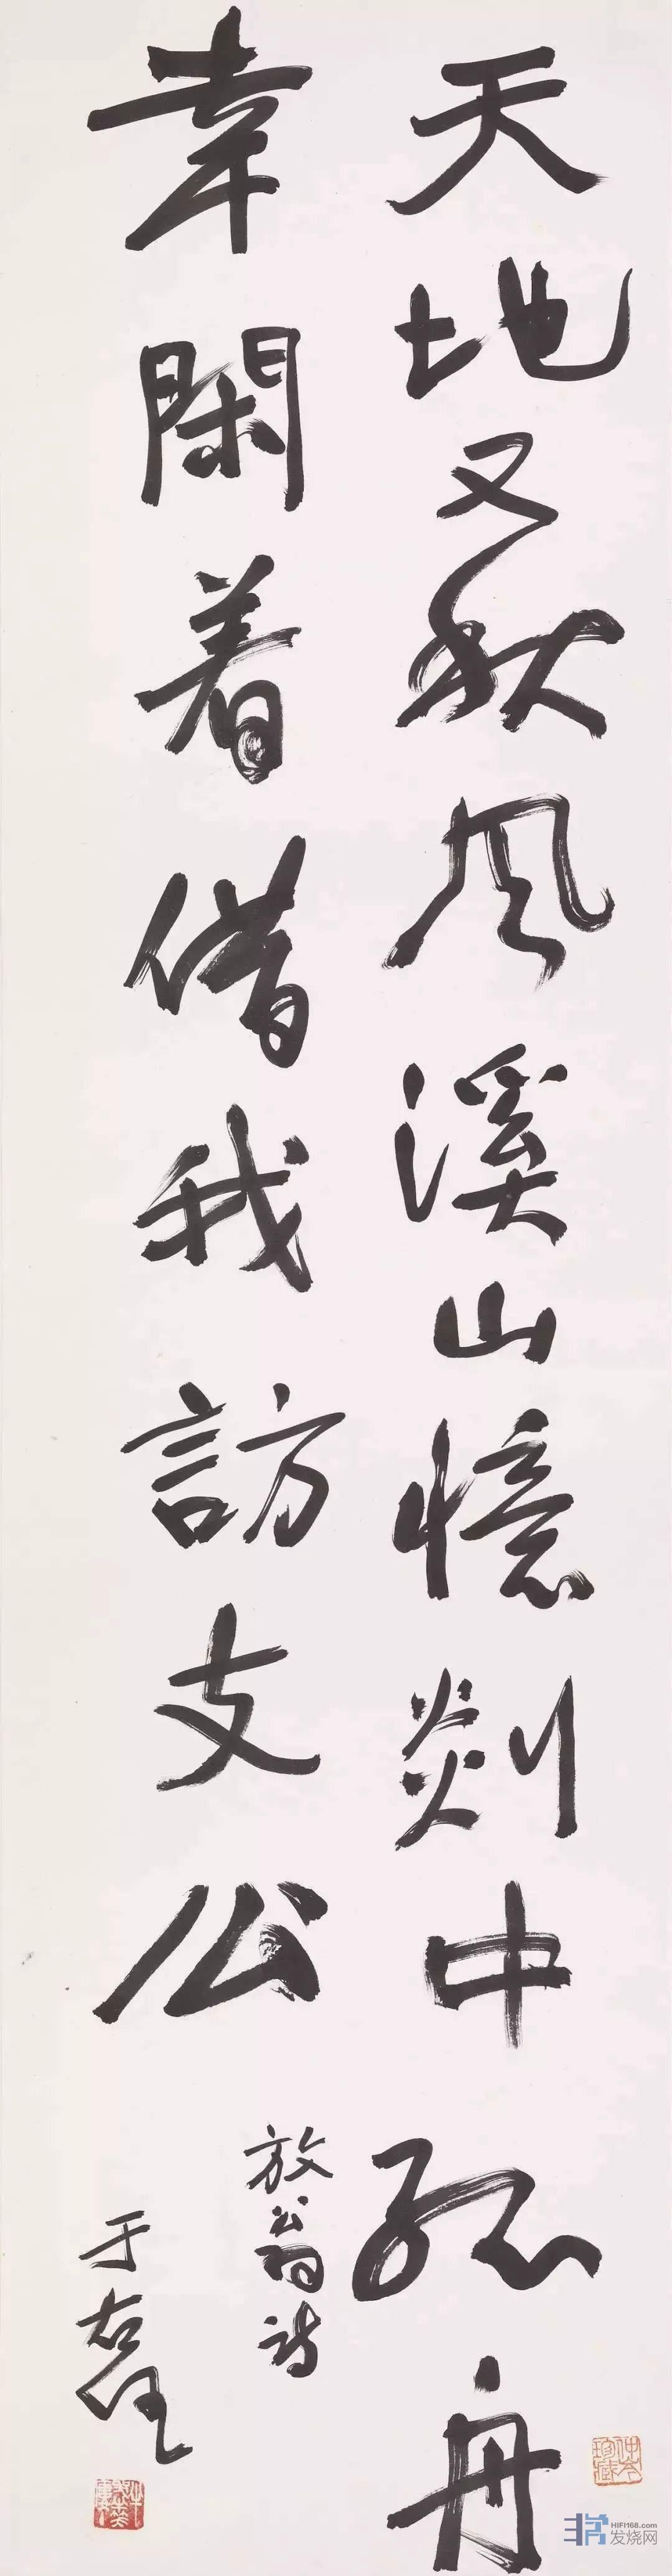 天地又秋風溪山憶剡中孤舟
幸閑着借我訪支公
放翁詩
于右任
HIFI168.com
发烧网